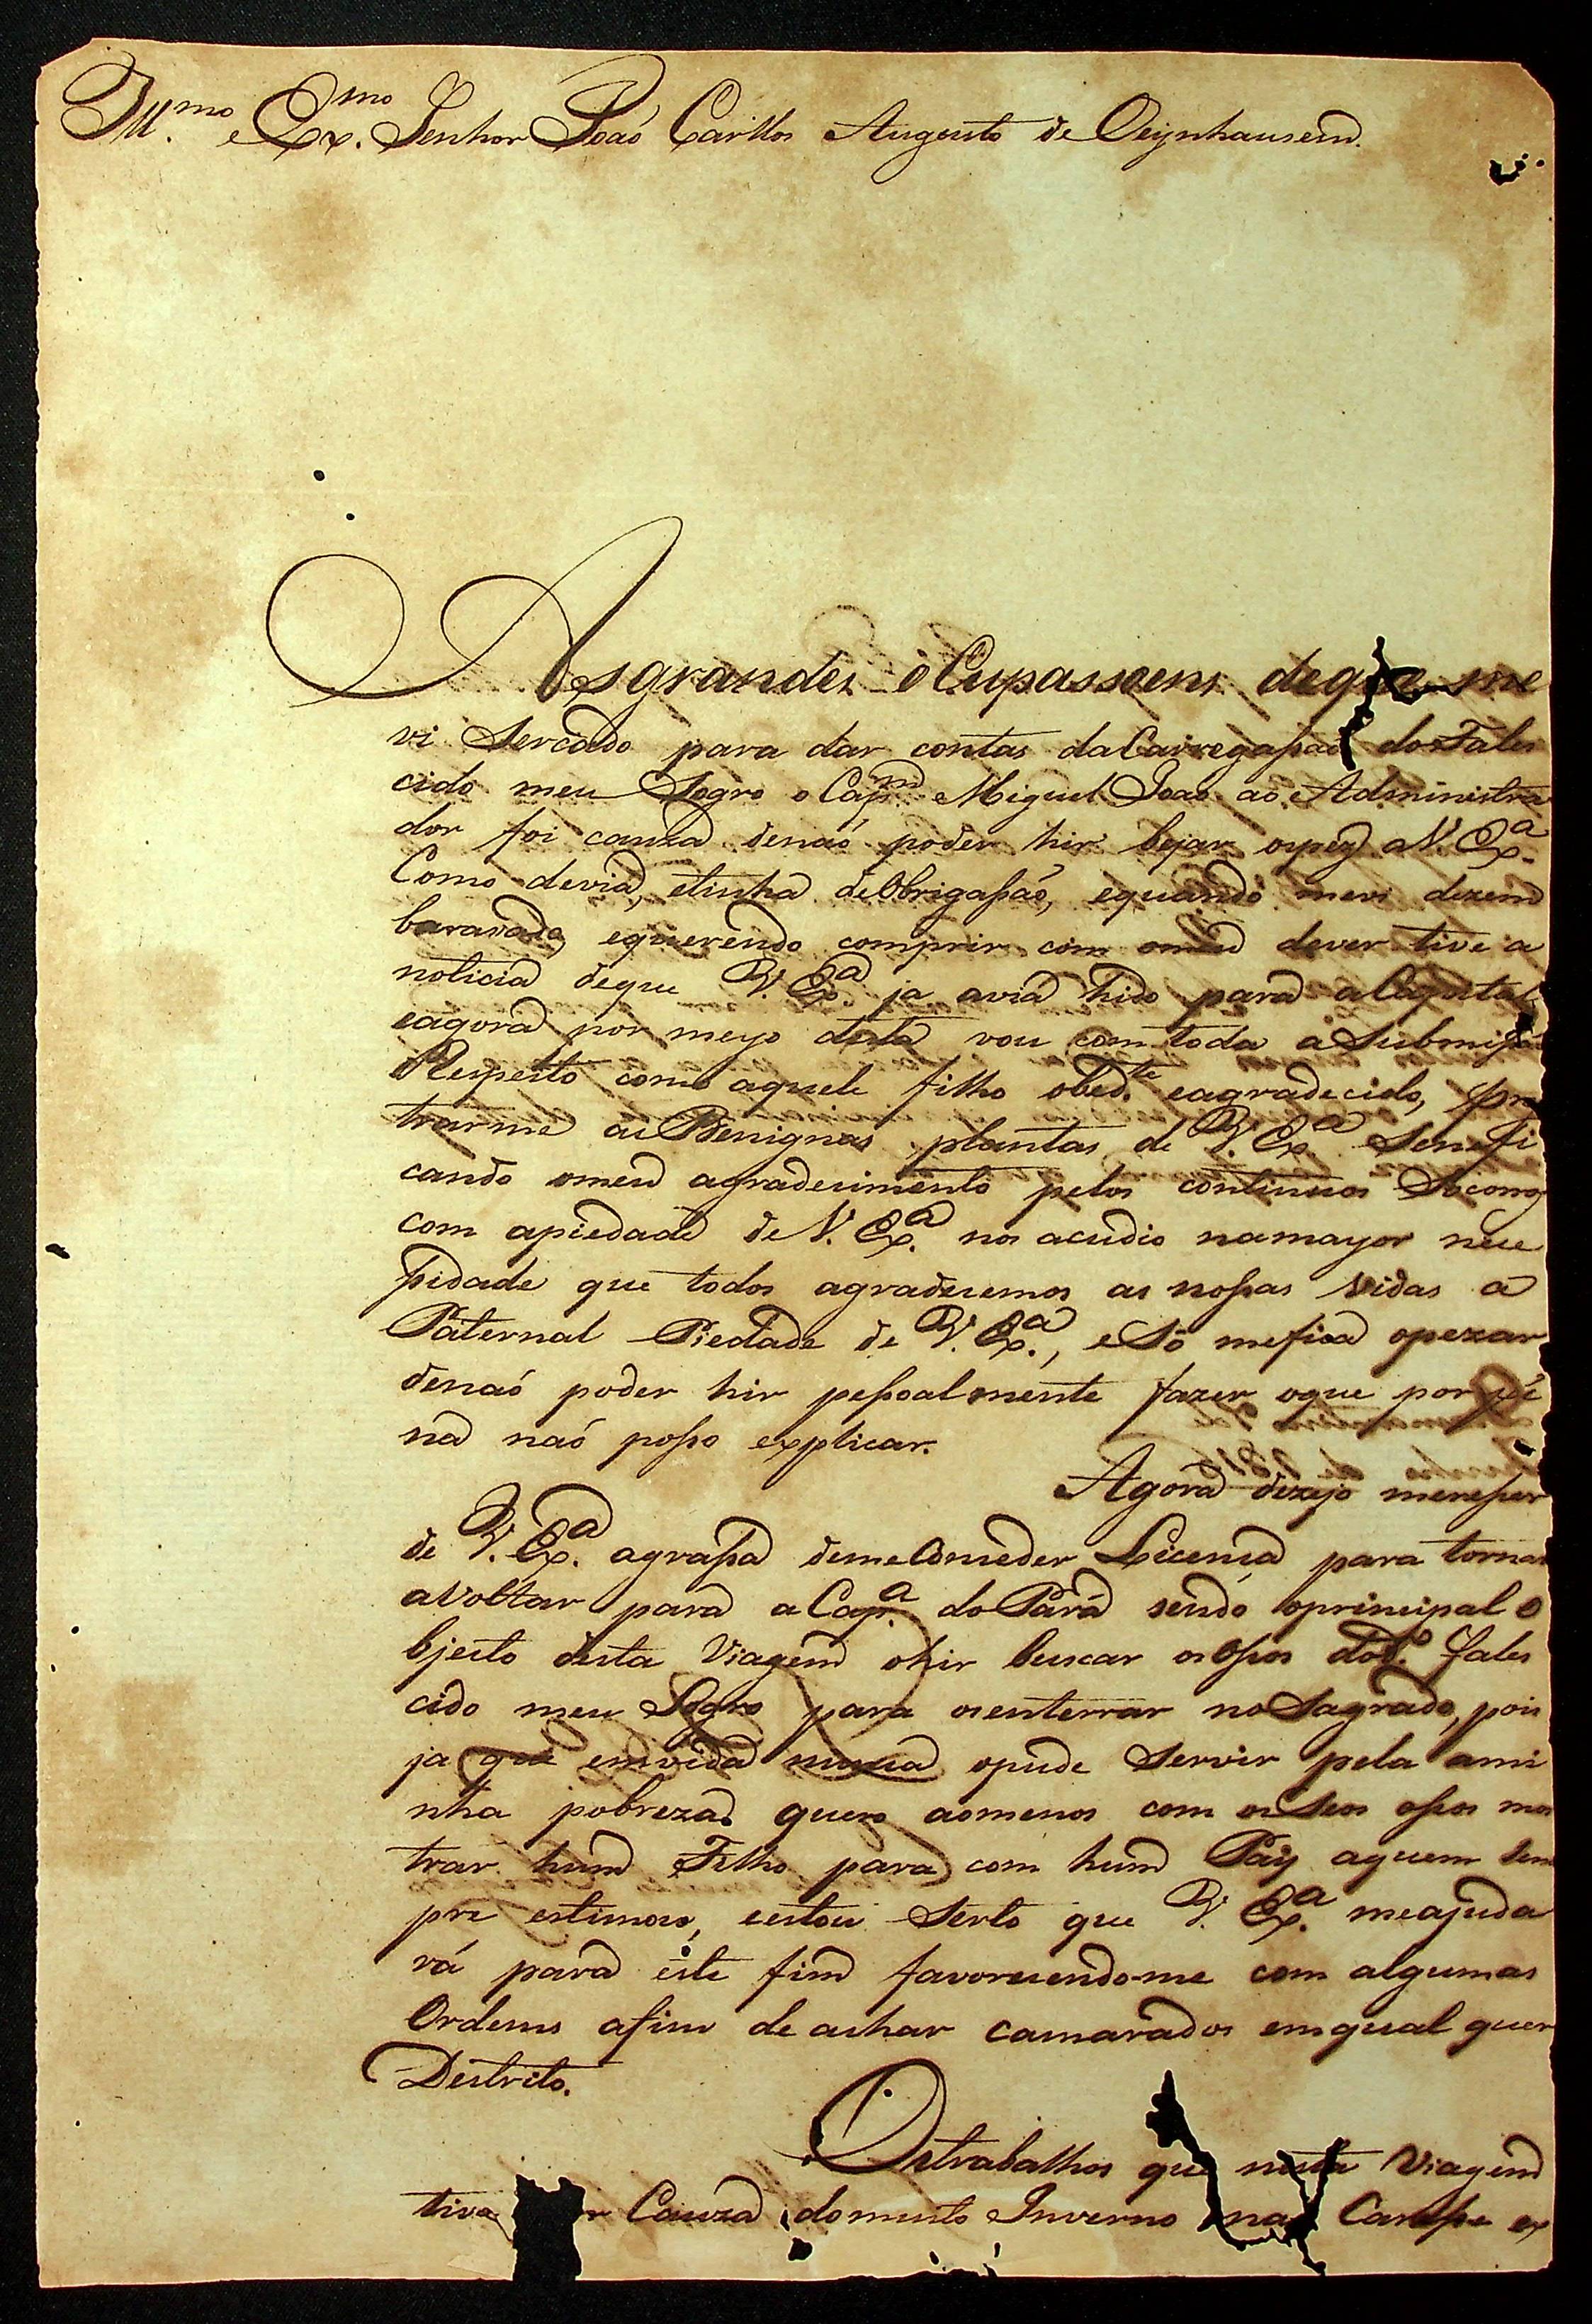 Ill.mo e Ex.mo Senhor João Carllos Augusto de Oeynhausem
As grandes óCupassoens deque me
vi Sercado para dar contas daCarregaſsaõ do Fales
cido meu Sogro o Cap.m Miguel Joaõ ao Administra
dor foi cauza denaõ poder hir bejar os pez a V. Ex.a
Como devia, etinha deObrigaſsaõ, equando mevi dezem
barasado, equerendo comprir com omeu dever tive a
noticia deque V. Ex.a ja avia hido para aCapital
eagora por meyo desta vou com toda a Submiſsaõ
Respeito como aquele filho obed.te eagradecido, pros
trarme as Benignas plantas de V. Ex.a Senefi
cando omeu agradecimento pelos continuos Socorros
com apiedade de V. Ex.a nos acudio namayor nece
ſsidade que todos agradecemos as noſsas vidas a
Paternal Piedade de V. Ex.a, e Só mefica opezar
denaõ poder hir peſsoalmente fazer oque por pe
na naõ poſso explicar.
Agora dezejo mereſser
de V. Ex.a agraſsa demeConseder Licensa para tornar
aVoltar para a Cap.a do Pará sendo oprincipal O
bjecto desta Viagem ohir buscar osOſsos dod.o fales
cido meu Sogro para osenterrar no Sagrado, pois
ja que emvida nunca opude Servir pela ami
nha pobreza quero aomenos com os Seos oſsos mos
trar hum Filho para com hum Pay aquem Sem
pre estimou, eestou Serto que V. Ex.a meajuda
rá para este fim favorecendo-me com algumas
Ordens afim de achar camarados emqual quer
Destrito.
Os trabalhos que nesta Viagem
tive por Cauza domuito Inverno nas Campe ex